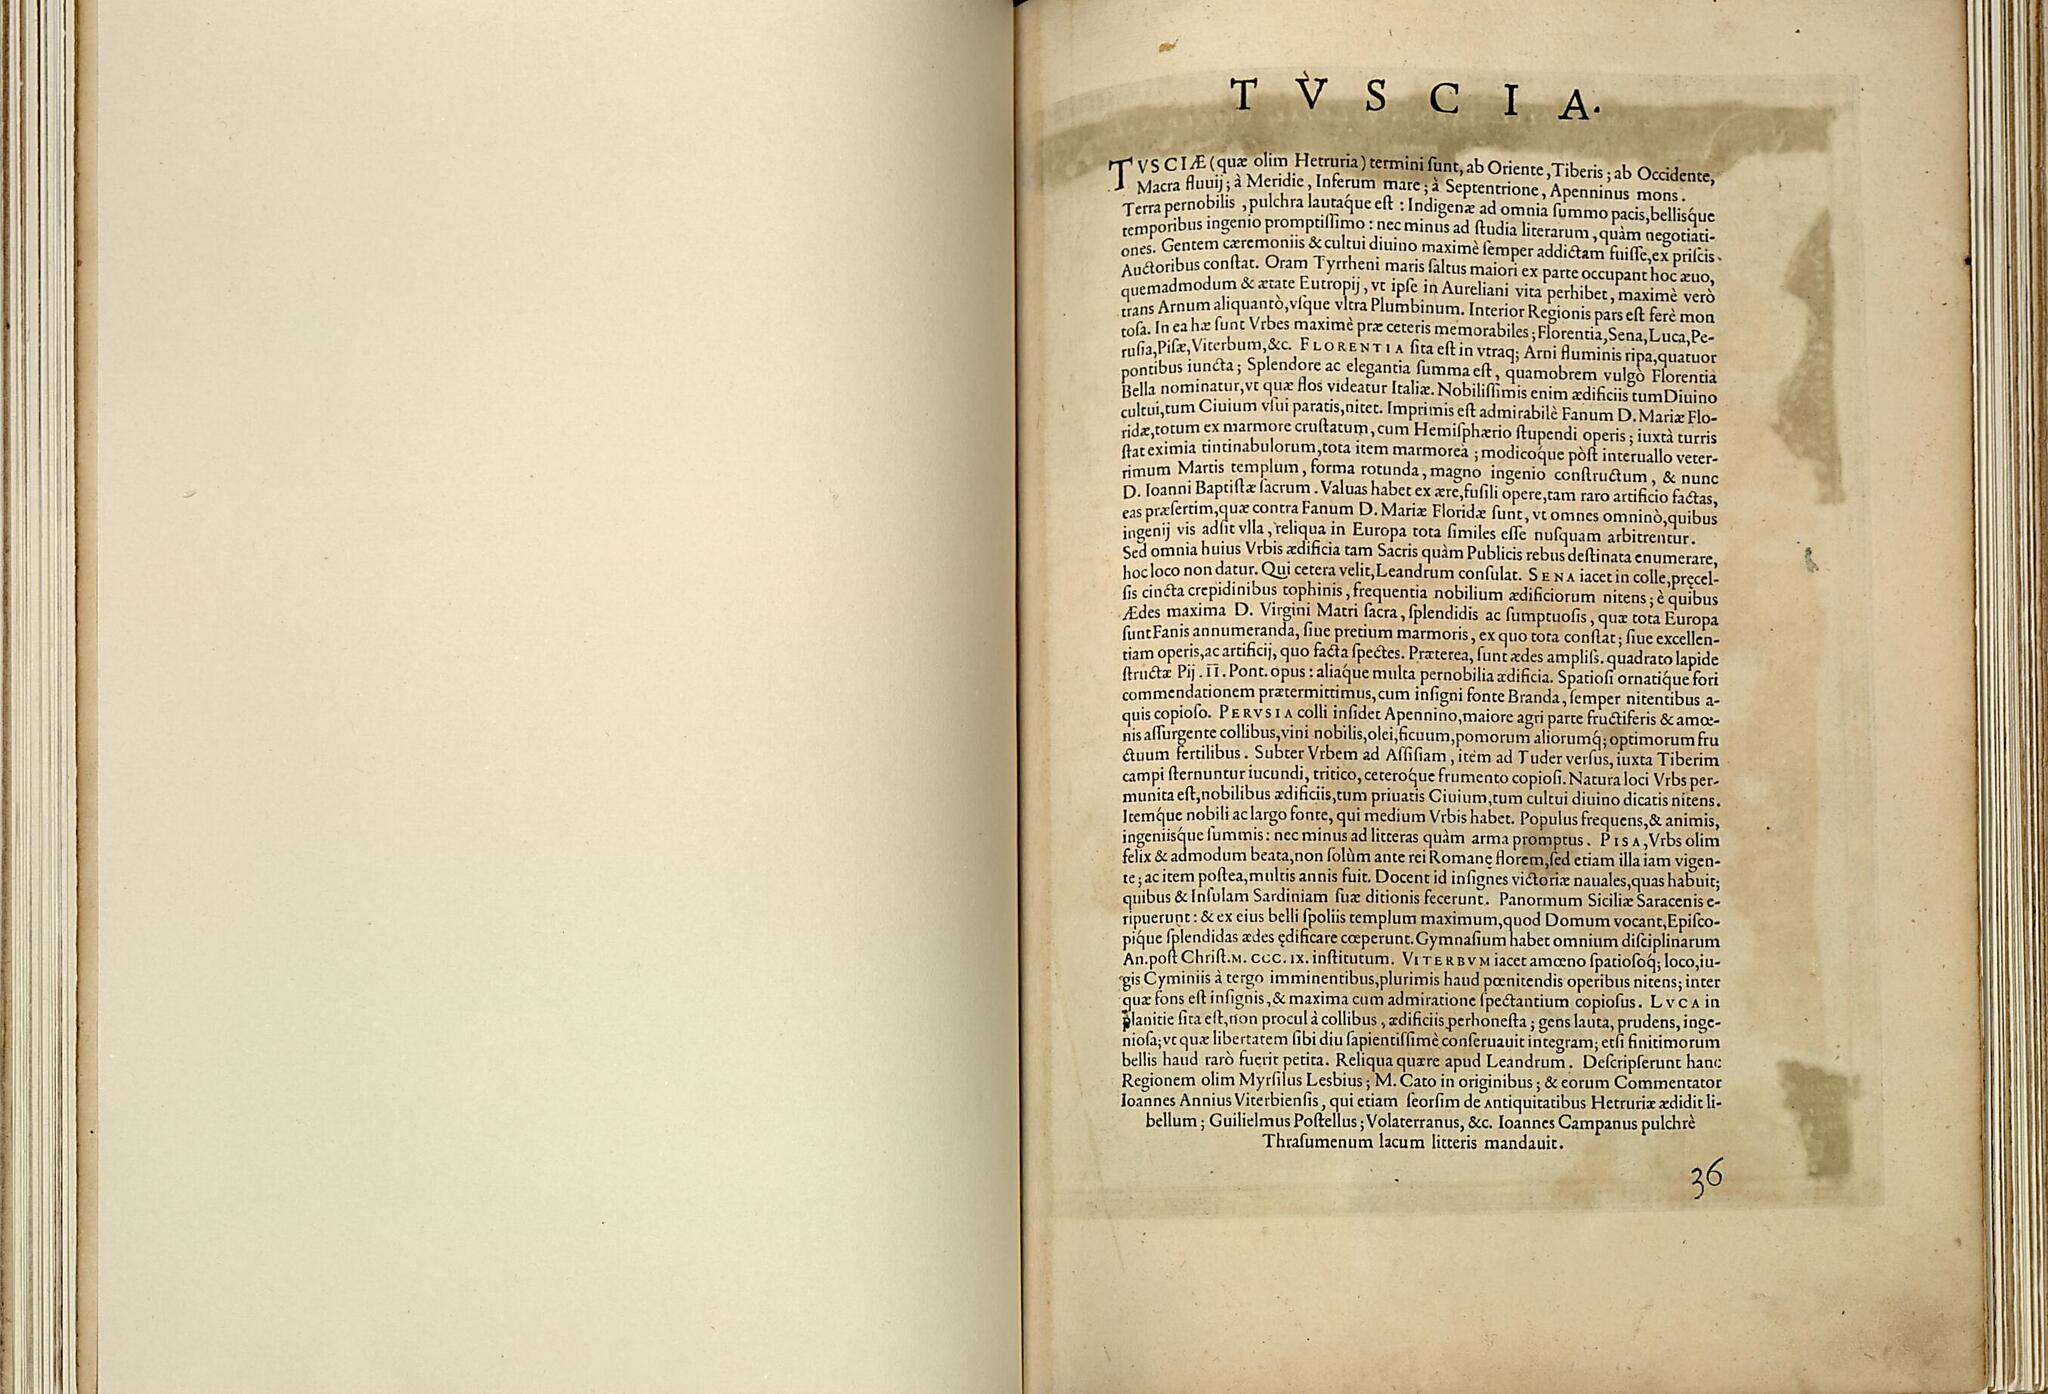 TVSCIA.
TVSCIÆ (quæ olim Hetruria) termini ſunt, ab Oriente, Tiberis; ab Occidente,
Macra fluuij; à Meridie, Inferum mare; à Septentrione, Apenninus mons.
Terra pernobilis, pulchra lautaque eſt: Indigenæ ad omnia ſummo pacis, belliſq́ue
temporibus ingenio promptiſſimo: nec minus ad ſtudia literarum, quàm negotiati-
ones. Gentem cæremoniis & cultui diuino maximè ſemper addictam fuiſſe, ex priſcis
Auctoribus conſtat. Oram Tyrrheni maris ſaltus maiori ex parte occupant hoc æuo,
quemadmodum & ætate Eutropij, vt ipſe in Aureliani vita perhibet, maximè verò
trans Arnum aliquantò, vſque vltra Plumbinum. Interior Regionis pars eſt ferè mon
toſa. In ea hæ ſunt Vrbes maximè præ ceteris memorabiles; Florentia, Sena, Luca, Pe-
ruſia, Piſæ, Viterbum, &c. FLORENTIA ſita eſt in vtraq; Arni fluminis ripa, quatuor
pontibus iuncta; Splendore ac elegantia ſumma eſt, quamobrem vulgò Florentia
Bella nominatur, vt quæ flos videatur Italiæ. Nobiliſſimis enim ædificiis tum Diuino
cultui, tum Ciuium vſui paratis, nitet. Imprimis eſt admirabilè Fanum D. Mariæ Flo-
ridæ, totum ex marmore cruſtatum, cum Hemiſphærio ſtupendi operis; iuxtà turris
ſtat eximia tintinabulorum, tota item marmoreà; modicoq́ue pòſt interuallo veter-
rimum Martis templum, forma rotunda, magno ingenio conſtructum, & nunc
D. Ioanni Baptiſtæ ſacrum. Valuas habet ex ære, fuſili opere, tam raro artificio factas,
eas præſertim, quæ contra Fanum D. Mariæ Floridæ ſunt, vt omnes omninò, quibus
ingenij vis adſit vlla, reliqua in Europa tota ſimiles eſſe nuſquam arbitrentur.
Sed omnia huius Vrbis ædificia tam Sacris quàm Publicis rebus deſtinata enumerare,
hoc loco non datur. Qui cetera velit, Leandrum conſulat. SENA iacet in colle, pręcel-
ſis cincta crepidinibus tophinis, frequentia nobilium ædificiorum nitens; è quibus
Ædes maxima D. Virgini Matri ſacra, ſplendidis ac ſumptuoſis, quæ tota Europa
ſunt Fanis annumeranda, ſiue pretium marmoris, ex quo tota conſtat; ſiue excellen-
tiam operis, ac artificij, quo facta ſpectes. Præterea, ſunt ædes ampliſs. quadrato lapide
ſtructæ Pij. II. Pont. opus: aliaq́ue multa pernobilia ædificia. Spatioſi ornatiq́ue fori
commendationem prætermittimus, cum inſigni fonte Branda, ſemper nitentibus a-
quis copioſo. PERVSIA colli inſidet Apennino, maiore agri parte fructiferis & amœ-
nis aſſurgente collibus, vini nobilis, olei, ficuum, pomorum aliorumq́; optimorum fru
ctuum fertilibus. Subter Vrbem ad Aſſiſiam, item ad Tuder verſus, iuxta Tiberim
campi ſternuntur iucundi, tritico, ceteroq́ue frumento copioſi. Natura loci Vrbs per-
munita eſt, nobilibus ædificiis, tum priuatis Ciuium, tum cultui diuino dicatis nitens.
Itemq́ue nobili ac largo fonte, qui medium Vrbis habet. Populus frequens, & animis,
ingeniiſq́ue ſummis: nec minus ad litteras quàm arma promptus. PISA, Vrbs olim
felix & admodum beata, non ſolùm ante rei Romanę florem, ſed etiam illa iam vigen-
te; ac item poſtea, multis annis fuit. Docent id inſignes victoriæ nauales, quas habuit;
quibus & Inſulam Sardiniam ſuæ ditionis fecerunt. Panormum Siciliæ Saracenis e-
ripuerunt: & ex eius belli ſpoliis templum maximum, quod Domum vocant, Epiſco-
piq́ue ſplendidas ædes ędificare cœperunt. Gymnaſium habet omnium diſciplinarum
An. poſt Chriſt. M. CCC. IX. inſtitutum. VITERBVM iacet amœno ſpatioſoq́; loco, iu-
gis Cyminiis à tergo imminentibus, plurimis haud pœnitendis operibus nitens; inter
quæ fons eſt inſignis, & maxima cum admiratione ſpectantium copioſus. LVCA in
planitie ſita eſt, non procul à collibus, ædificiis perhoneſta; gens lauta, prudens, inge-
nioſa; vt quæ libertatem ſibi diu ſapientiſſimè conſeruauit integram; etſi finitimorum
bellis haud rarò fuerit petita. Reliqua quære apud Leandrum. Deſcripſerunt hanc
Regionem olim Myrſilus Lesbius; M. Cato in originibus; & eorum Commentator
Ioannes Annius Viterbienſis, qui etiam ſeorſim de Antiquitatibus Hetruriæ ædidit li-
bellum; Guilielmus Poſtellus; Volaterranus, &c. Ioannes Campanus pulchrè
Thraſumenum lacum litteris mandauit.
36